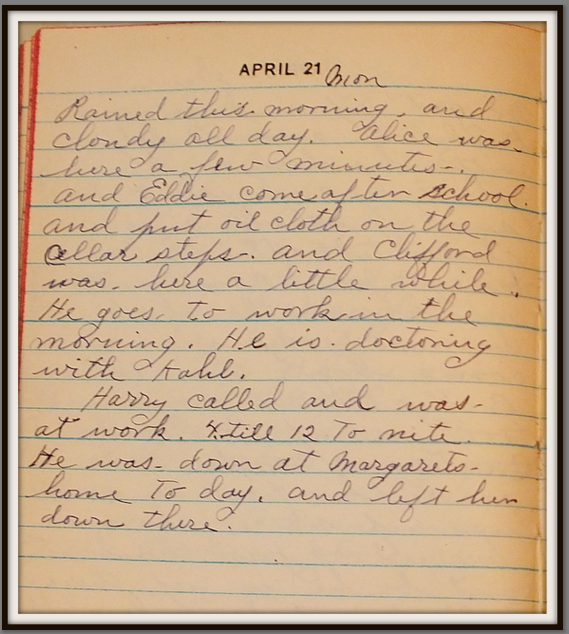 APRIL 21 Mon
Rained this morning, and
cloudy all day. Alice was
here a few minutes.
and Eddie come after school.
and put oil cloth on the
cellar steps. and Clifford
was. here a little while.
He goes. to work in the
morning. He is. doctoring
with Kahl.
Harry called and was
at work. till 12 To nite.
He was. down at Margarets
home To day. and left her
down there.